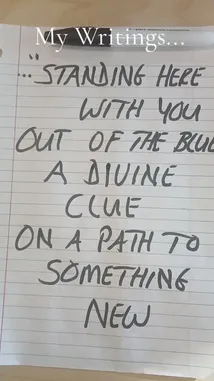 My Writings...
..."STANDING HERE
WITH YOU
OUT OF THE BLUE
A DIVINE
CLUE
ON A PATH TO
SOMETHING
NEW